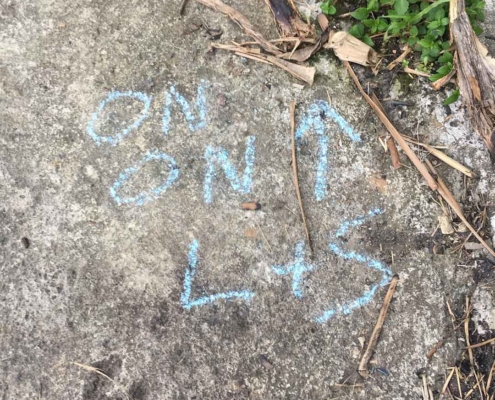 ON
ON ↑
L+S